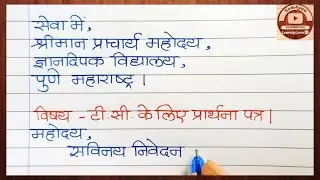 सेवा में,
श्रीमान प्राचार्य महोदय,
ज्ञानदिपक विद्यालय,
पुणे महाराष्ट्र।
विषय - टी.सी. के लिए प्रार्थना पत्र।
महोदय,
सविनय निवेदन